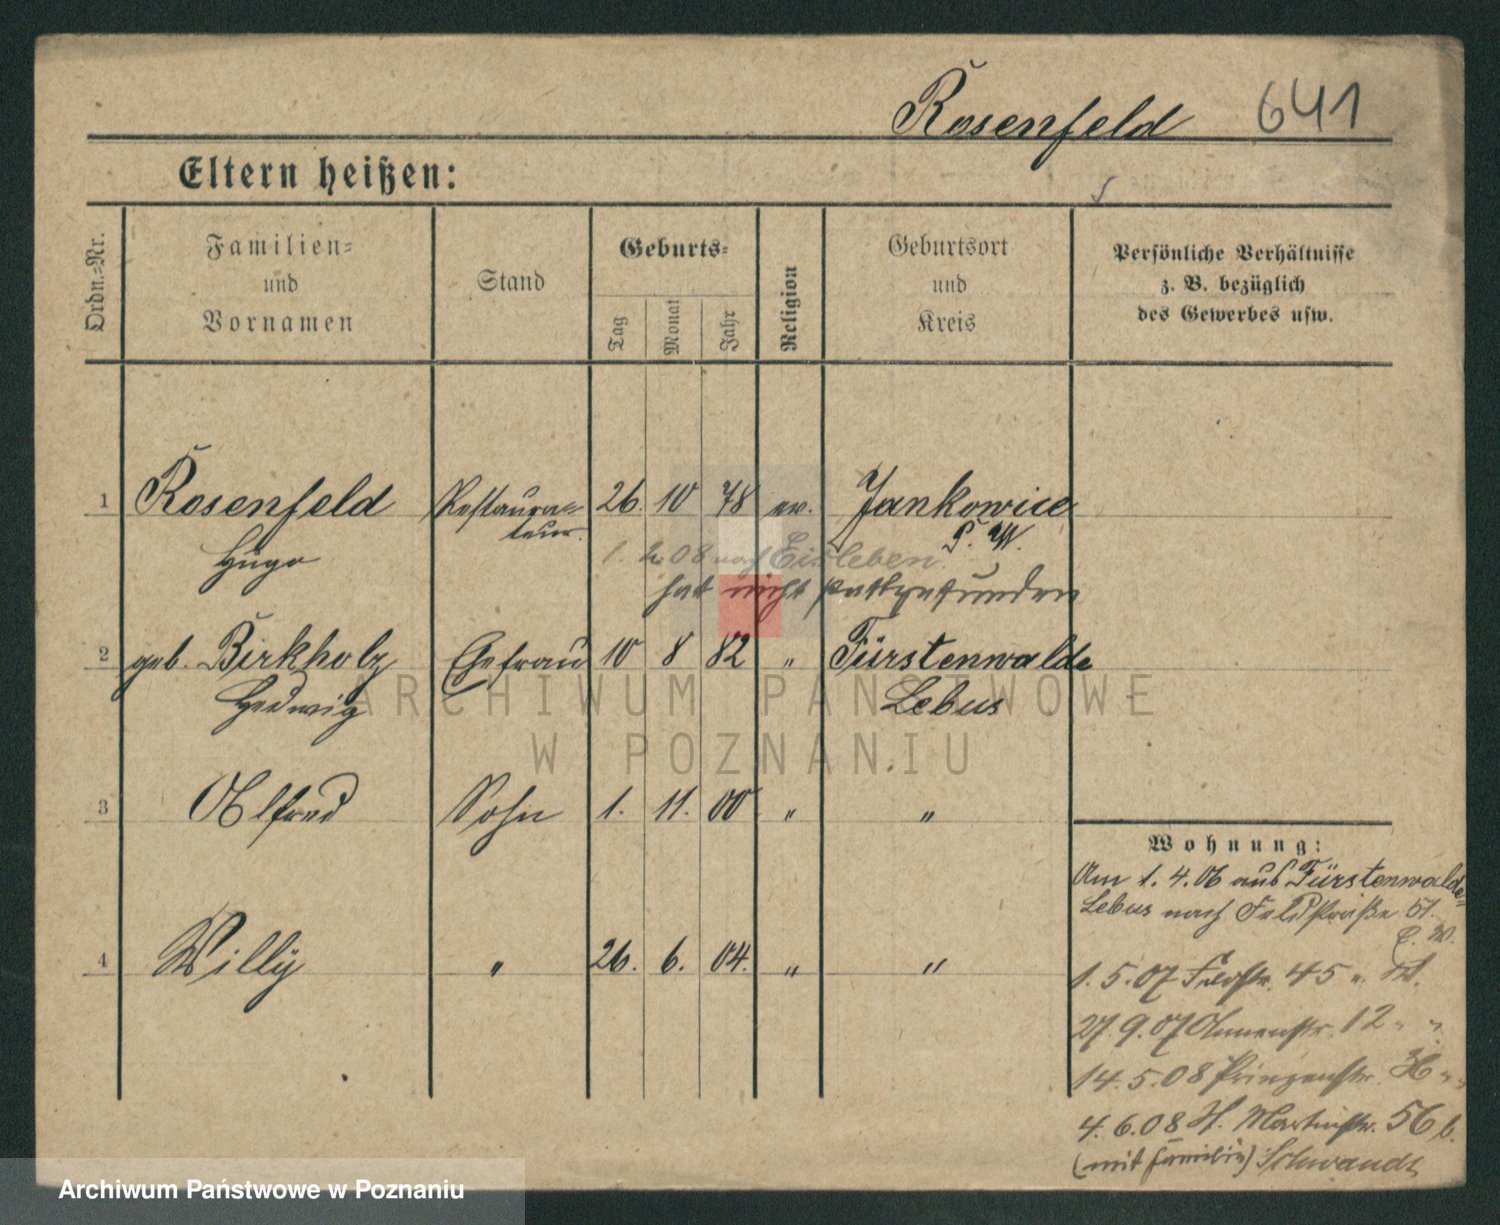 Rosenfeld 641
Eltern heißen:
Ordn.=Nr.
Familien=
und
Vornamen
Stand
Geburts=
Tag
Monat
Jahr
Religion
Geburtsort
und
Kreis
Persönliche Verhältnisse
z. B. bezüglich
des Gewerbes usw.
1 Rosenfeld Restaura= 26. 10 78 ev. Jankowice
Hugo teur. P. W.
1. 08 nach Eisleben
hat nicht stattgefunden
2 geb. Birkholz Ehefrau 10 8 82 " Fürstenwalde
Hedwig Lebus
3 Alfred Sohn 1. 11. 00 " "
4 Willy " 26. 6. 04. " "
Wohnung:
Am 1. 4. 06 aus Fürstenwalde=
Lebus nach Feldstraße 51.
P. W.
1. 5. 07 Feldstr. 45
27. 9. 07 12 " "
14. 5. 08 Prinzenstr. 36 " "
4. 6. 08 St. Martinstr. 56 b.
(mit Familie) Schwandt
ARCHIWUM PAŃSTWOWE
W POZNANIU
Archiwum Państwowe w Poznaniu